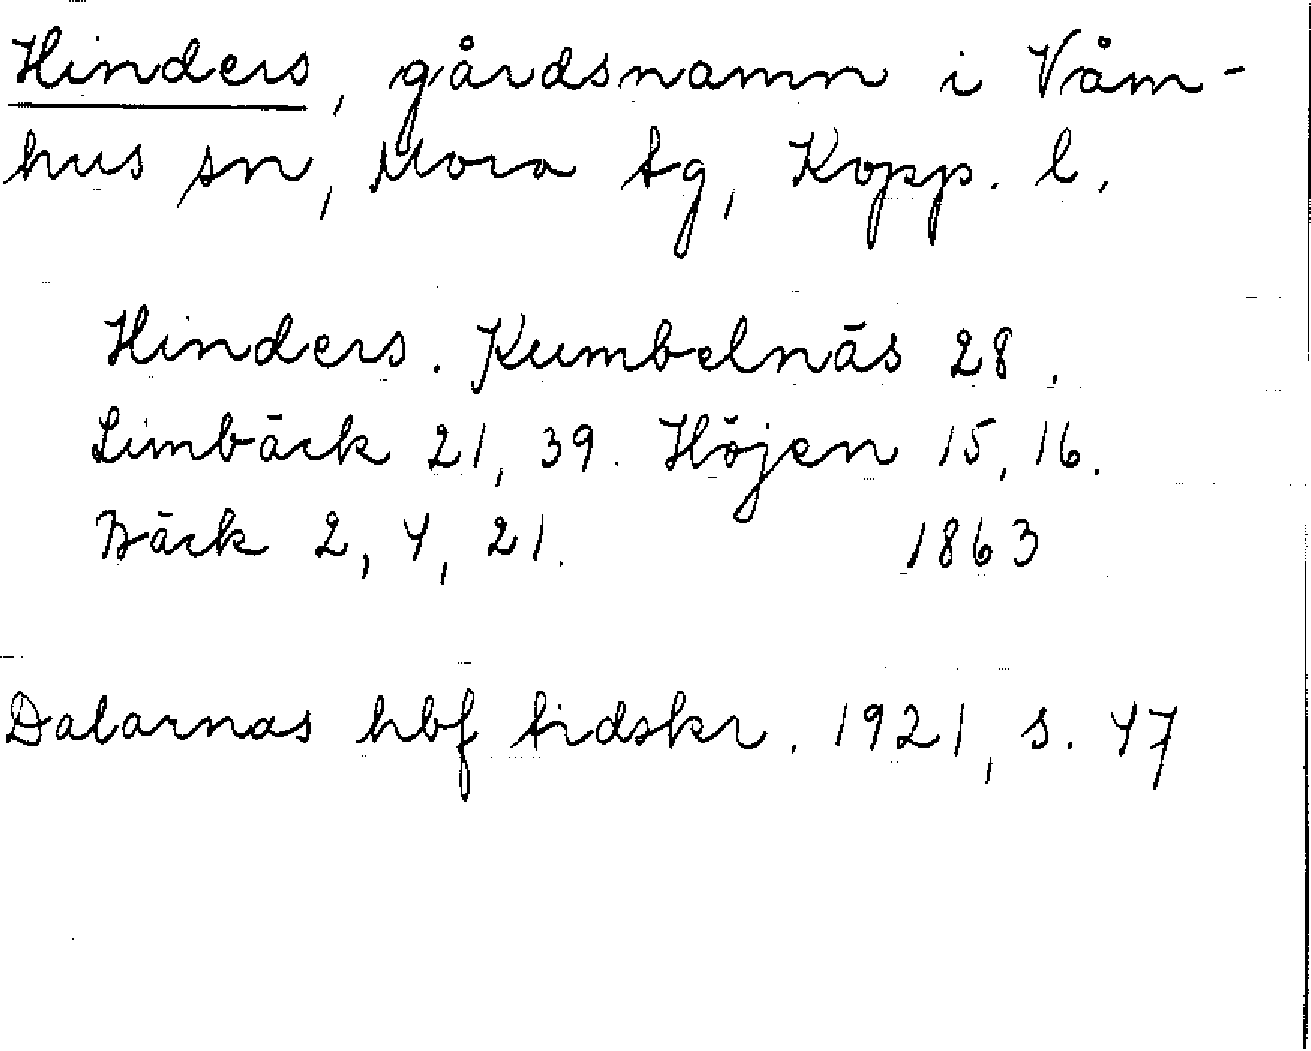 Hinders, gårdsnamn i Våm-
hus sn, Mora tg, Kopp. l.
Hinders. Kumbelnäs 28.
Limbäck 21, 39. Höjen 15, 16.
Bäck 2, 4, 21. 1863
Dalarnas hbf tidskr. 1921, s. 47